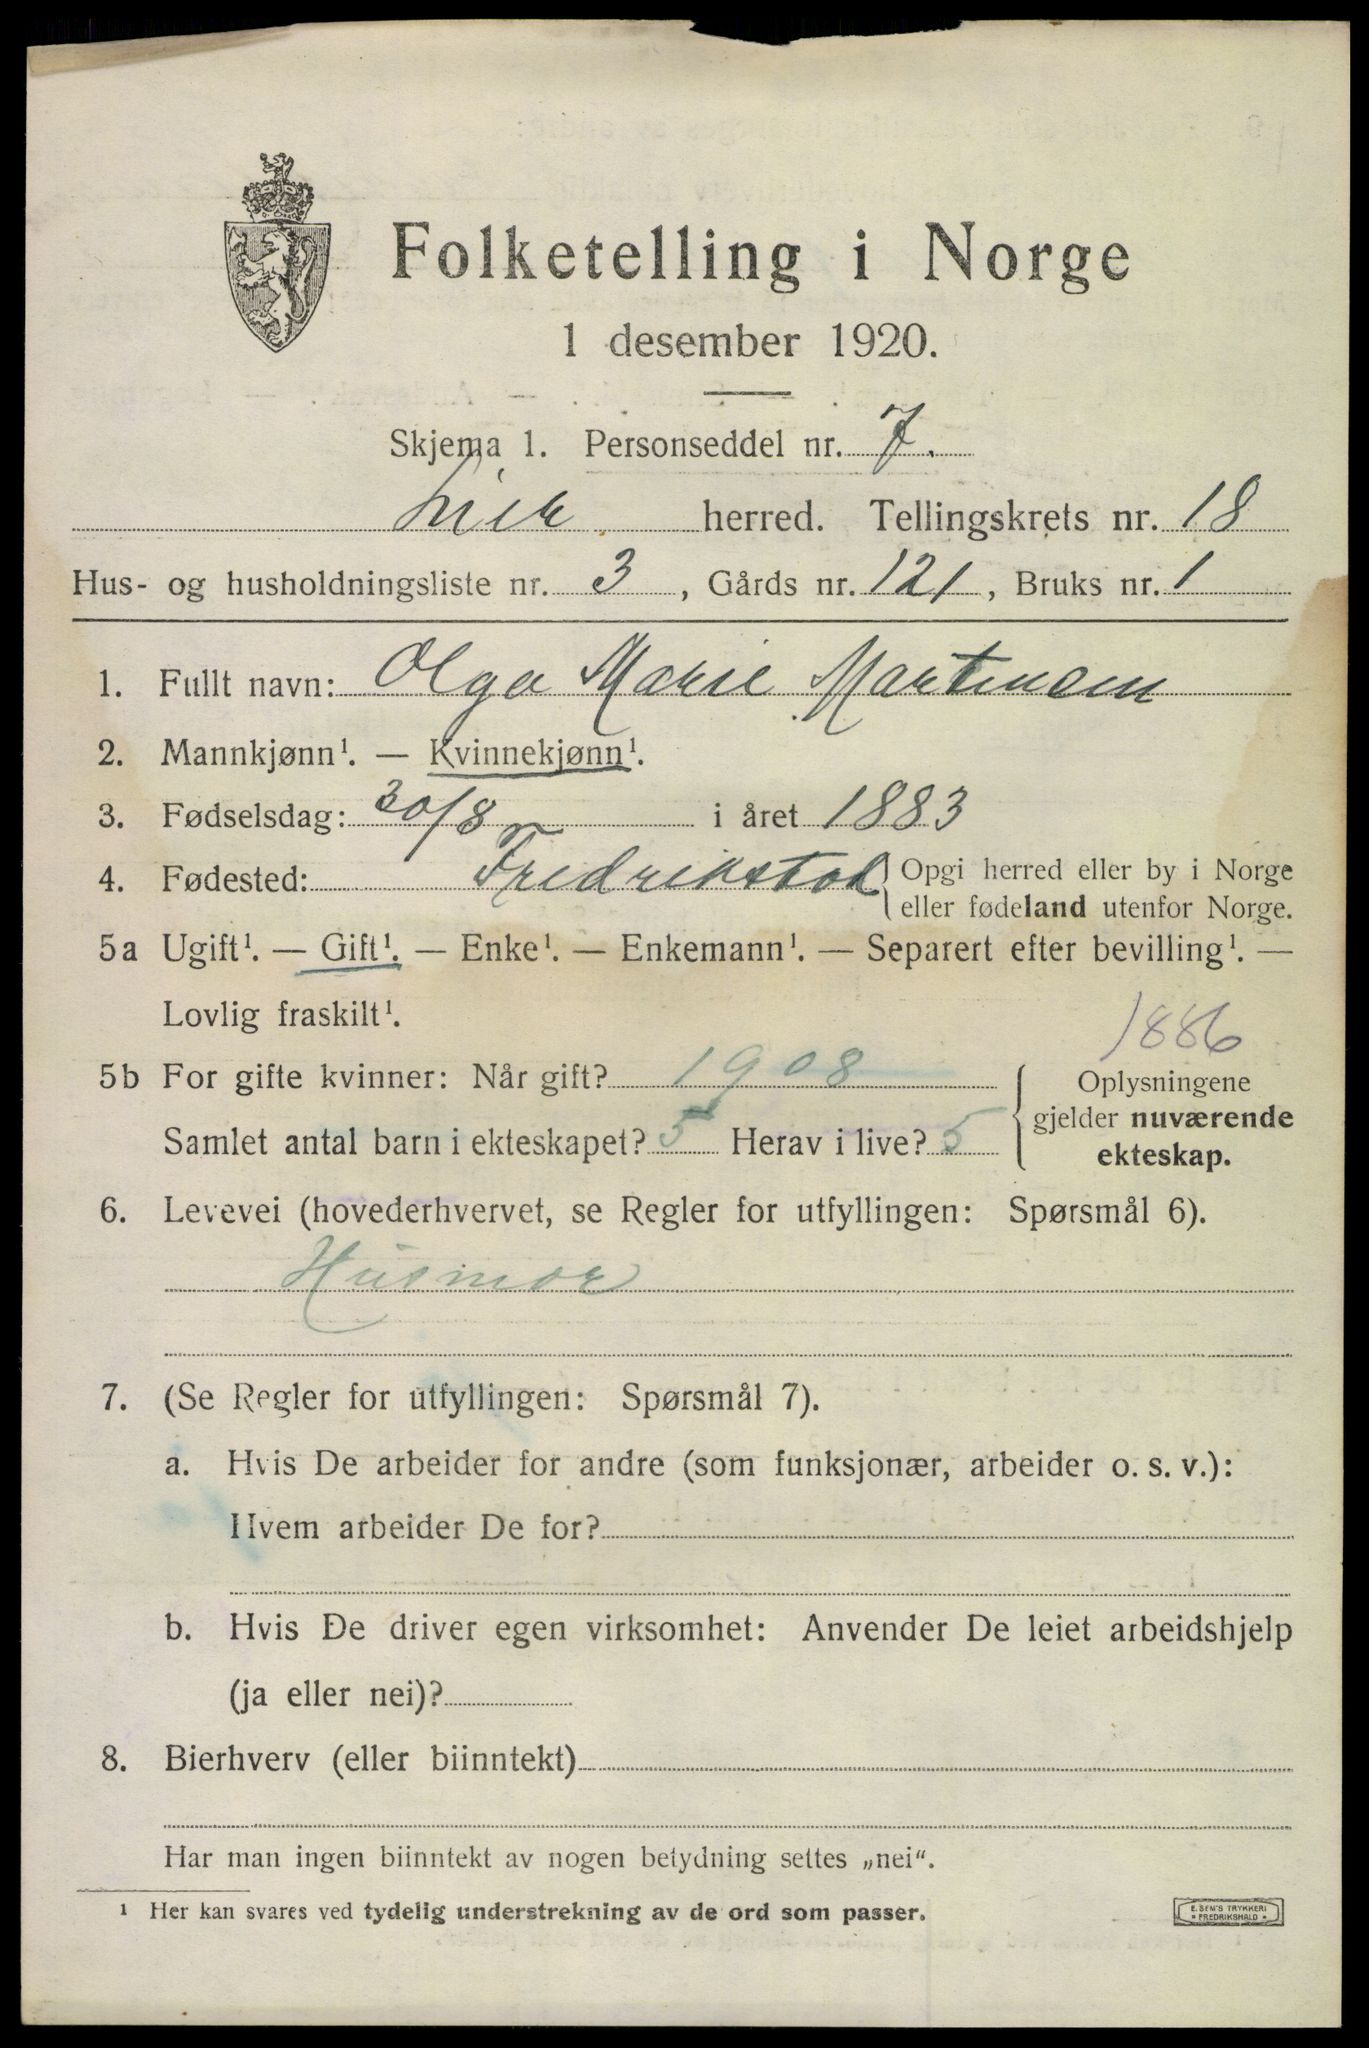 Folketelling i Norge
1 desember 1920.
Skjema 1. Personseddel nr. 7.
Lier herred. Tellingskrets nr. 18
Hus- og husholdningsliste nr. 3, Gårds nr. 121, Bruks nr. 1
1. Fullt navn: Olga Marie Martinsen
2. Mannkjønn¹. — Kvinnekjønn¹.
3. Fødselsdag: 30/8 i året 1883
4. Fødested: Fredrikstad { Opgi herred eller by i Norge
eller fødeland utenfor Norge.
5a Ugift¹. — Gift¹. — Enke¹. — Enkemann¹. — Separert efter bevilling¹. —
Lovlig fraskilt¹.
1886
5b For gifte kvinner: Når gift? 1908
Samlet antal barn i ekteskapet? 5 Herav i live? 5
Oplysningene
gjelder nuværende
ekteskap.
6. Levevei (hovederhvervet, se Regler for utfyllingen: Spørsmål 6).
Husmor
7. (Se Regler for utfyllingen: Spørsmål 7).
a. Hvis De arbeider for andre (som funksjonær, arbeider o. s. v.):
Hvem arbeider De for?
b. Hvis De driver egen virksomhet: Anvender De leiet arbeidshjelp
(ja eller nei)?
8. Bierhverv (eller biinntekt)
Har man ingen biinntekt av nogen betydning settes „nei“.
¹ Her kan svares ved tydelig understrekning av de ord som passer.
E. SEM'S TRYKKERI
• FREDRIKSHALD •